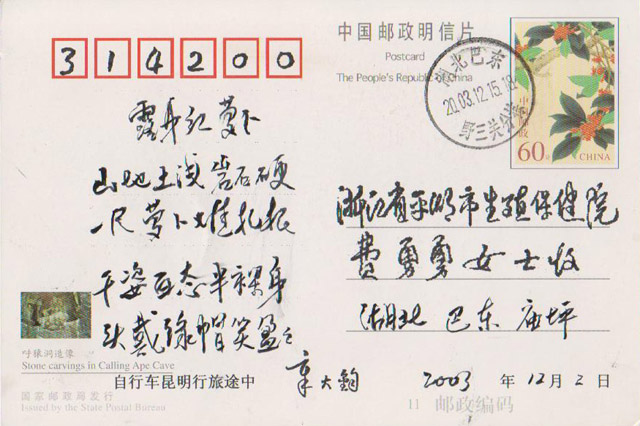 314200
中国邮政明信片
Postcard
The People's Republic of China
湖北巴东
2003.12.15.18
野三关
中国邮政
60分
CHINA
露身红萝卜
山地土浅岩石硬
一尺萝卜难扎根
千姿百态半裸身
头戴绿帽笑盈盈
大钧
自行车昆明行旅途中
浙江省平湖市生殖保健院
费勇勇女士收
湖北巴东庙坪
2003年12月2日
呼猿洞造像
Stone carvings in Calling Ape Cave
国家邮政局发行
Issued by the State Postal Bureau
11 邮政编码